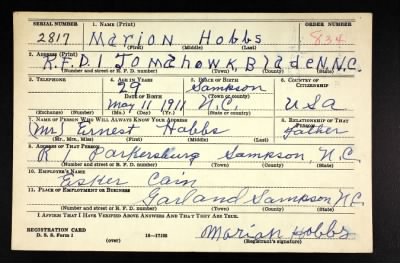 SERIAL NUMBER 1. NAME (Print) ORDER NUMBER
2817 Marion Hobbs 834
(First) (Middle) (Last)
2. ADDRESS (Print)
R.F.D.1 Tomahawk, Bladen, N.C.
(Number and street or R. F. D. number) (Town) (County) (State)
3. TELEPHONE 4. AGE IN YEARS 5. PLACE OF BIRTH 6. COUNTRY OF CITIZENSHIP
29 Sampson
DATE OF BIRTH (Town or county)
May 11 1911 N.C. USA
(Exchange) (Number) (Mo.) (Day) (Yr.) (State or country)
7. NAME OF PERSON WHO WILL ALWAYS KNOW YOUR ADDRESS 8. RELATIONSHIP OF THAT PERSON
(Mr) Ernest Hobbs Father
(Mr., Mrs., Miss) (First) (Middle) (Last)
9. ADDRESS OF THAT PERSON
R Parkersburg Sampson N.C.
(Number and street or R. F. D. number) (Town) (County) (State)
10. EMPLOYER'S NAME
Esker Cain
11. PLACE OF EMPLOYMENT OR BUSINESS
Garland Sampson N.C.
(Number and street or R. F. D. number) (Town) (County) (State)
I AFFIRM THAT I HAVE VERIFIED ABOVE ANSWERS AND THAT THEY ARE TRUE.
REGISTRATION CARD
D. S. S. Form 1 16—17105 Marion Hobbs
(over) (Registrant's signature)